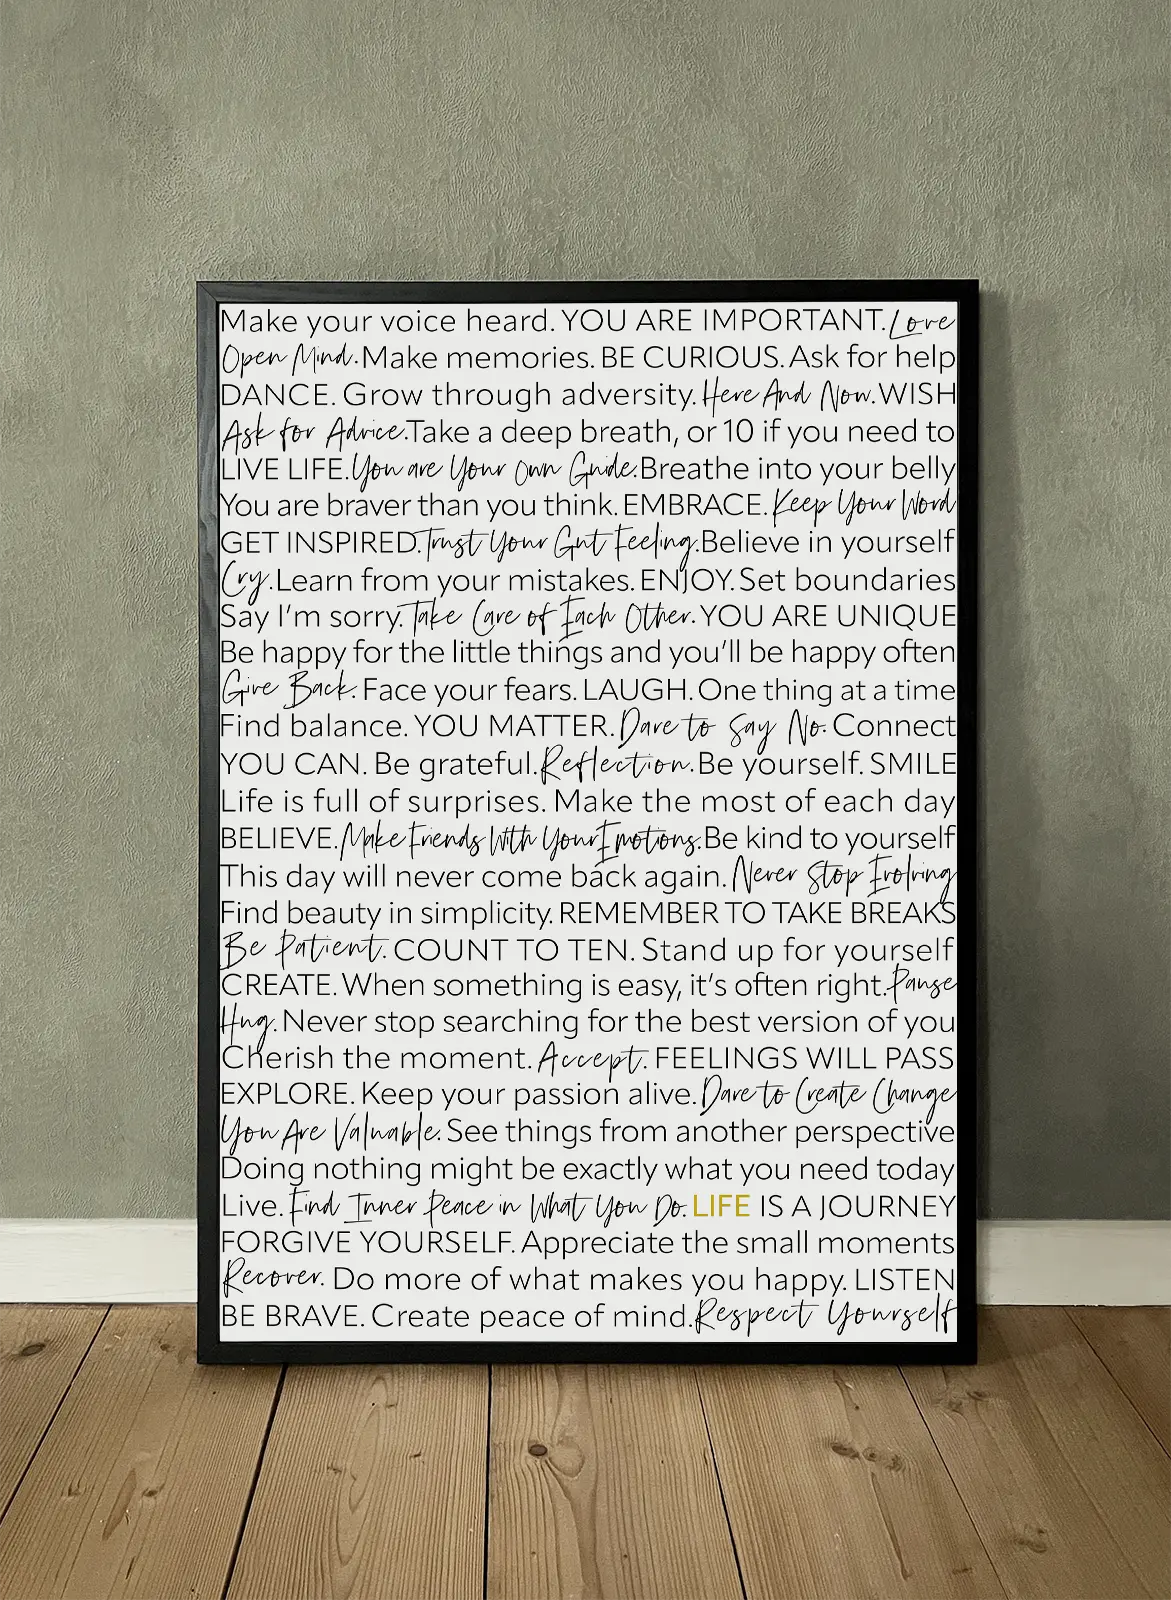 Make your voice heard. YOU ARE IMPORTANT. Love
Open Mind. Make memories. BE CURIOUS. Ask for help
DANCE. Grow through adversity. Here And Now. WISH
Ask for Advice. Take a deep breath, or 10 if you need to
LIVE LIFE. You are Your Own Guide. Breathe into your belly
You are braver than you think. EMBRACE. Keep Your Word
GET INSPIRED. Trust Your Gut Feeling. Believe in yourself
Cry. Learn from your mistakes. ENJOY. Set boundaries
Say I'm sorry. Take Care of Each Other. YOU ARE UNIQUE
Be happy for the little things and you'll be happy often
Give Back. Face your fears. LAUGH. One thing at a time
Find balance. YOU MATTER. Dare to Say No. Connect
YOU CAN. Be grateful. Reflection. Be yourself. SMILE
Life is full of surprises. Make the most of each day
BELIEVE. Make Friends With Your Emotions. Be kind to yourself
This day will never come back again. Never Stop Evolving
Find beauty in simplicity. REMEMBER TO TAKE BREAKS
Be Patient. COUNT TO TEN. Stand up for yourself
CREATE. When something is easy, it's often right. Pause
Hug. Never stop searching for the best version of you
Cherish the moment. Accept. FEELINGS WILL PASS
EXPLORE. Keep your passion alive. Dare to Create Change
You Are Valuable. See things from another perspective
Doing nothing might be exactly what you need today
Live. Find Inner Peace in What You Do. LIFE IS A JOURNEY
FORGIVE YOURSELF. Appreciate the small moments
Recover. Do more of what makes you happy. LISTEN
BE BRAVE. Create peace of mind. Respect Yourself